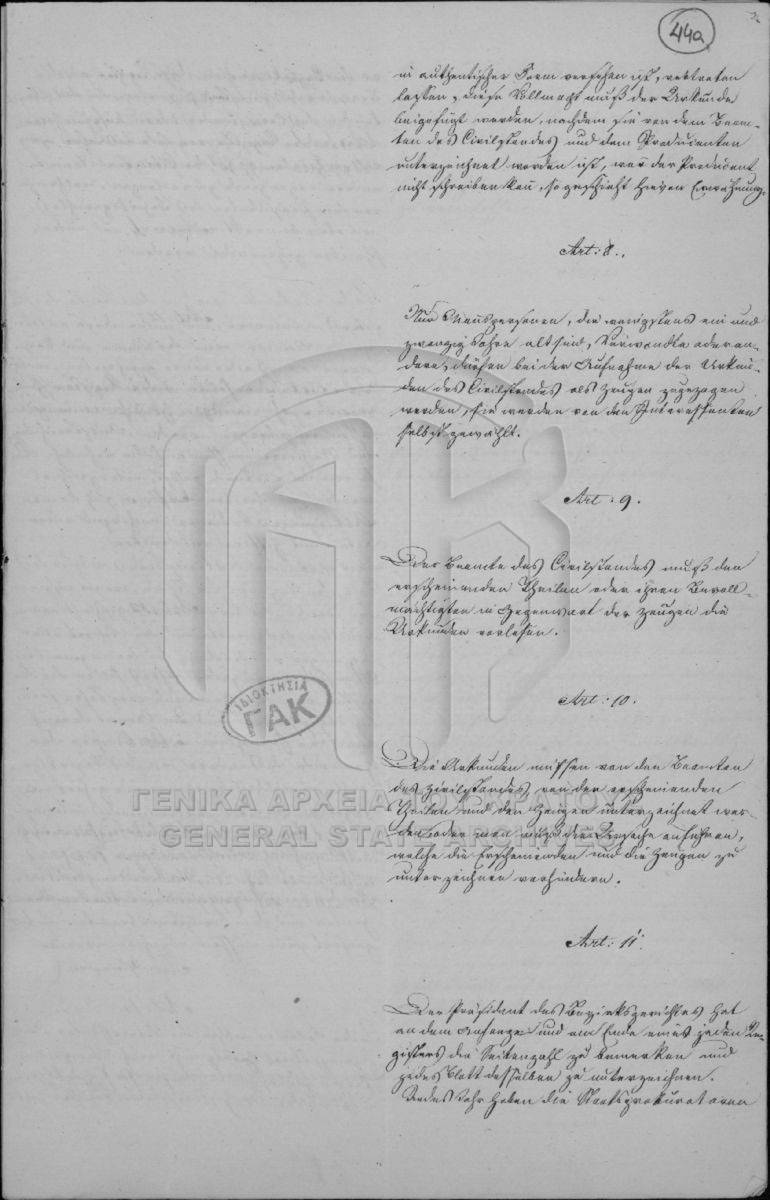 44a
in authentischer Form versehen ist, vertreten
lassen, diese Vollmacht muß der Urkunde
beigefügt werden, nachdem sie von dem Beam-
ten des Civilstandes und dem Producenten
unterzeichnet worden ist, der Producent
nicht schreiben kan, so geschieht hievon Erwähnung.
Art: 8.
Nur Manspersonen, die wenigstens ein und
zwanzig Jahre alt sind, Verwandte oder an-
dere, dürfen bei der Aufnahme der Urkun-
den des Civilstandes als Zeugen zugezogen
werden, sie werden von den Interessenten
selbst gewählt.
Art: 9.
Der Beamte des Civilstandes muß den
erscheinenden Theilen oder ihren Bevoll-
mächtigten in Gegenwart der Zeugen die
Urkunden vorlesen.
Art: 10.
Die Urkunden müssen von den Beamten
des Zivilstandes, von den erscheinenden
Theilen und den Zeugen unterzeichnet wer-
den oder man muß die Ursache anführen,
welche die Erscheinenden und die Zeugen zu
unterzeichnen verhindern.
Art: 11.
Der Präsident des Bezirksgerichtes hat
an dem Anfange und am Ende eines jeden Re-
gisters die Seitenzahl zu bemerken und
jedes Blatt desselben zu unterzeichnen.
Jedes Jahr haben die Staatsprokuratoren
ΙΔΙΟΚΤΗΣΙΑ
ΓΑΚ
ΓΕΝΙΚΑ ΑΡΧΕΙΑ ΤΟΥ ΚΡΑΤΟΥΣ
GENERAL STATE ARCHIVES